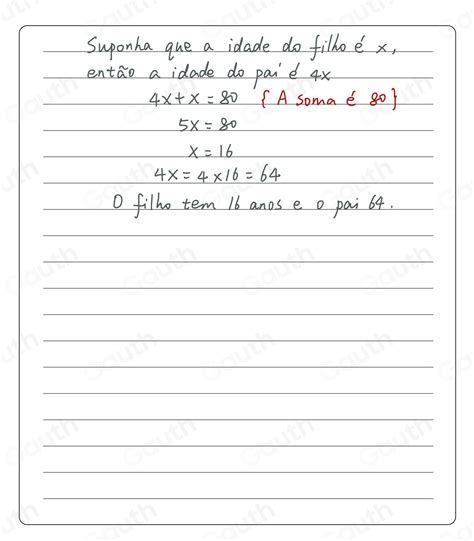 Suponha que a idade do filho é x,
então a idade do pai é 4x
4x+x = 80 { A soma é 80}
5x = 80
x = 16
4x = 4 x 16 = 64
O filho tem 16 anos e o pai 64.